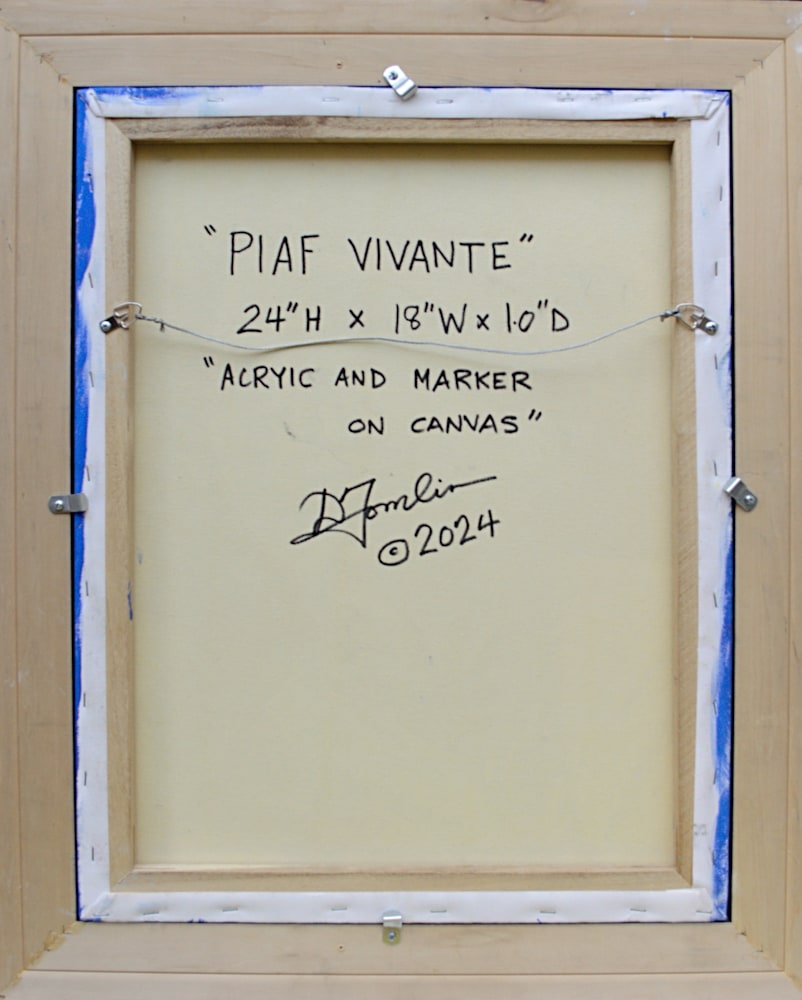 "PIAF VIVANTE"
24"H x 18"W x 1.0"D
"ACRYIC AND MARKER
ON CANVAS"
D Tomlin
©2024